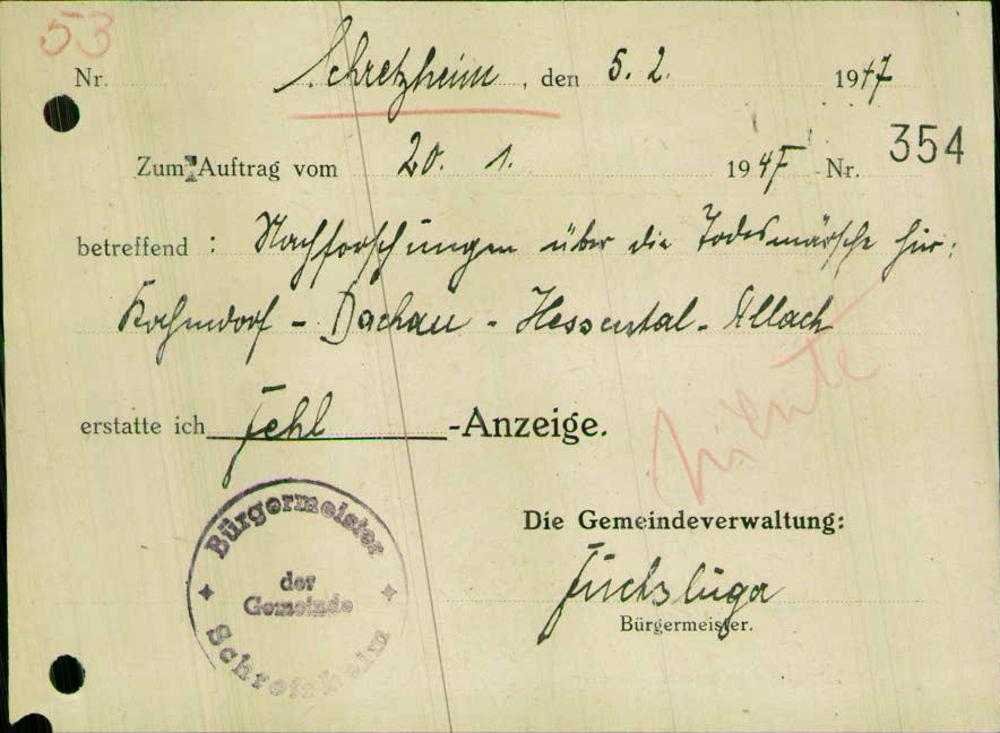 53
Nr. Schretzheim, den 5. 2. 1947
Zum Auftrag vom 20. 1. 1947 Nr. 354
betreffend : Nachforschungen über die Todesmärsche für:
Kochendorf - Dachau - Hessental - Allach
niente
erstatte ich Fehl-Anzeige.
Die Gemeindeverwaltung:
Bürgermeister.
Bürgermeister
der
Gemeinde
Schretzheim